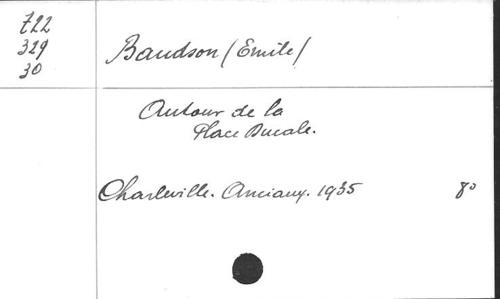 722
329
30
Baudson (Emile)
Autour de la
Place Ducale.
Charleville. Anciaux. 1935 8°